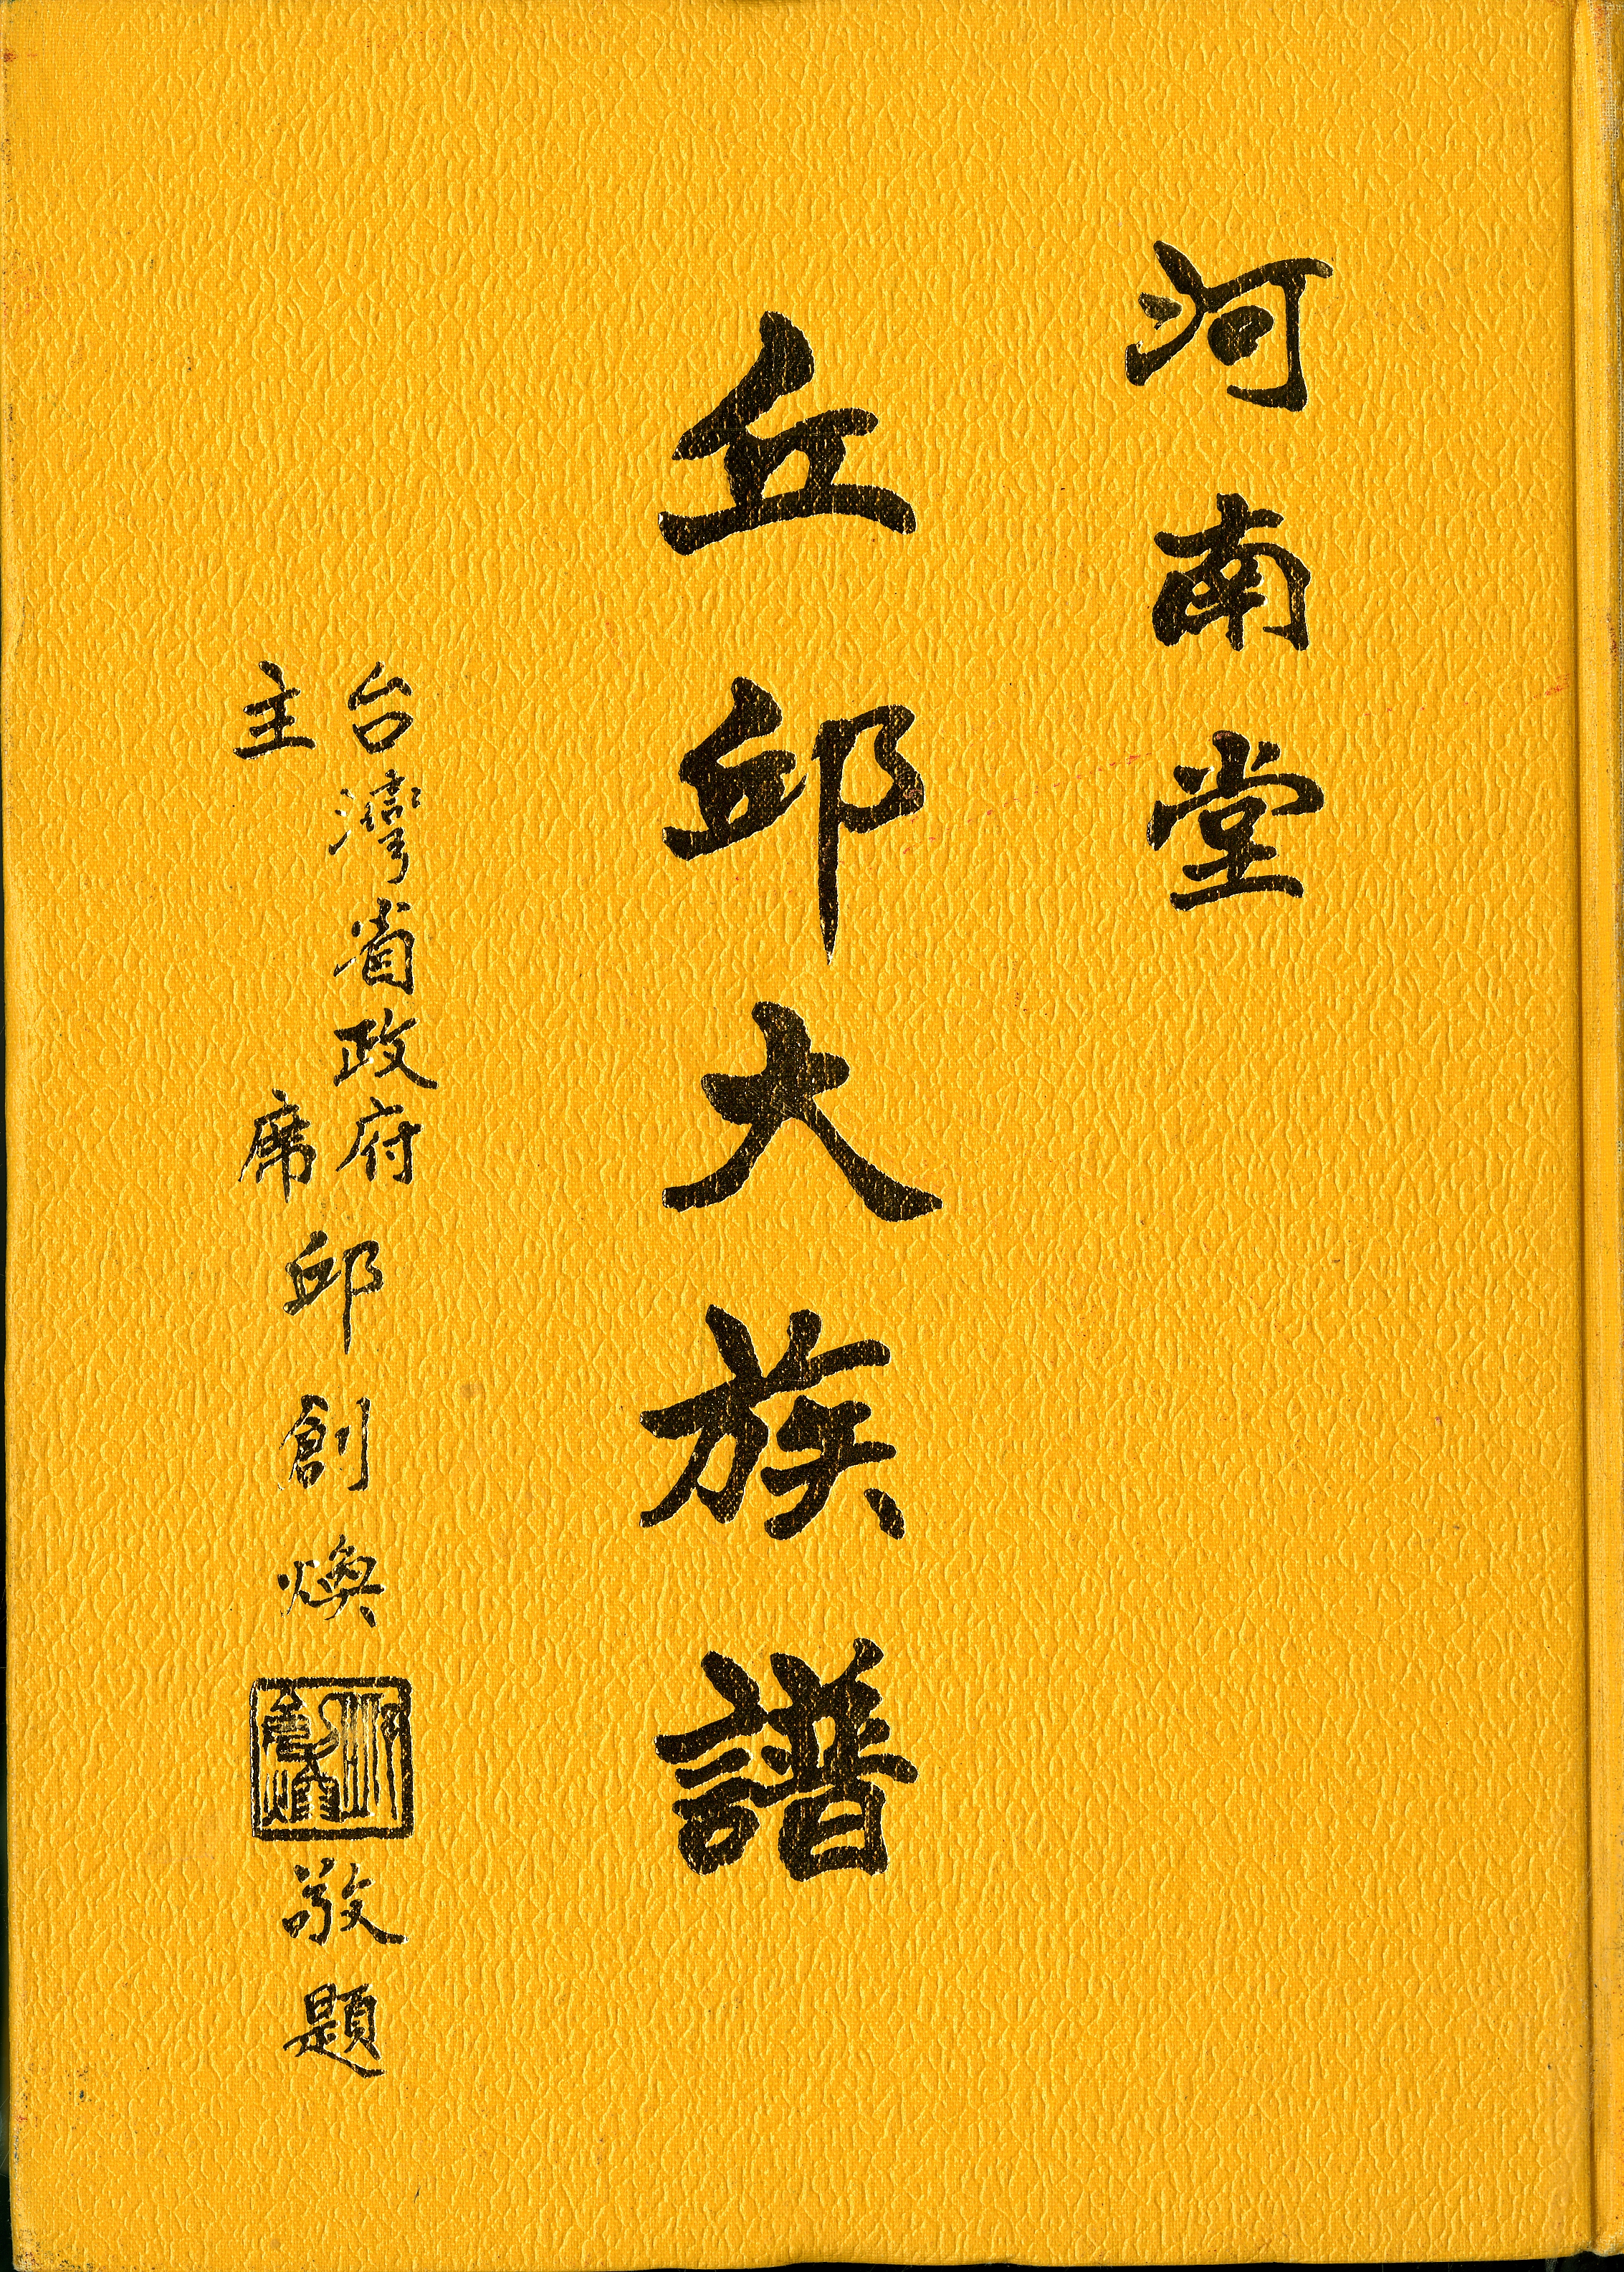 河南堂
丘邱大族譜
台灣省政府
主席
邱創煥
敬題